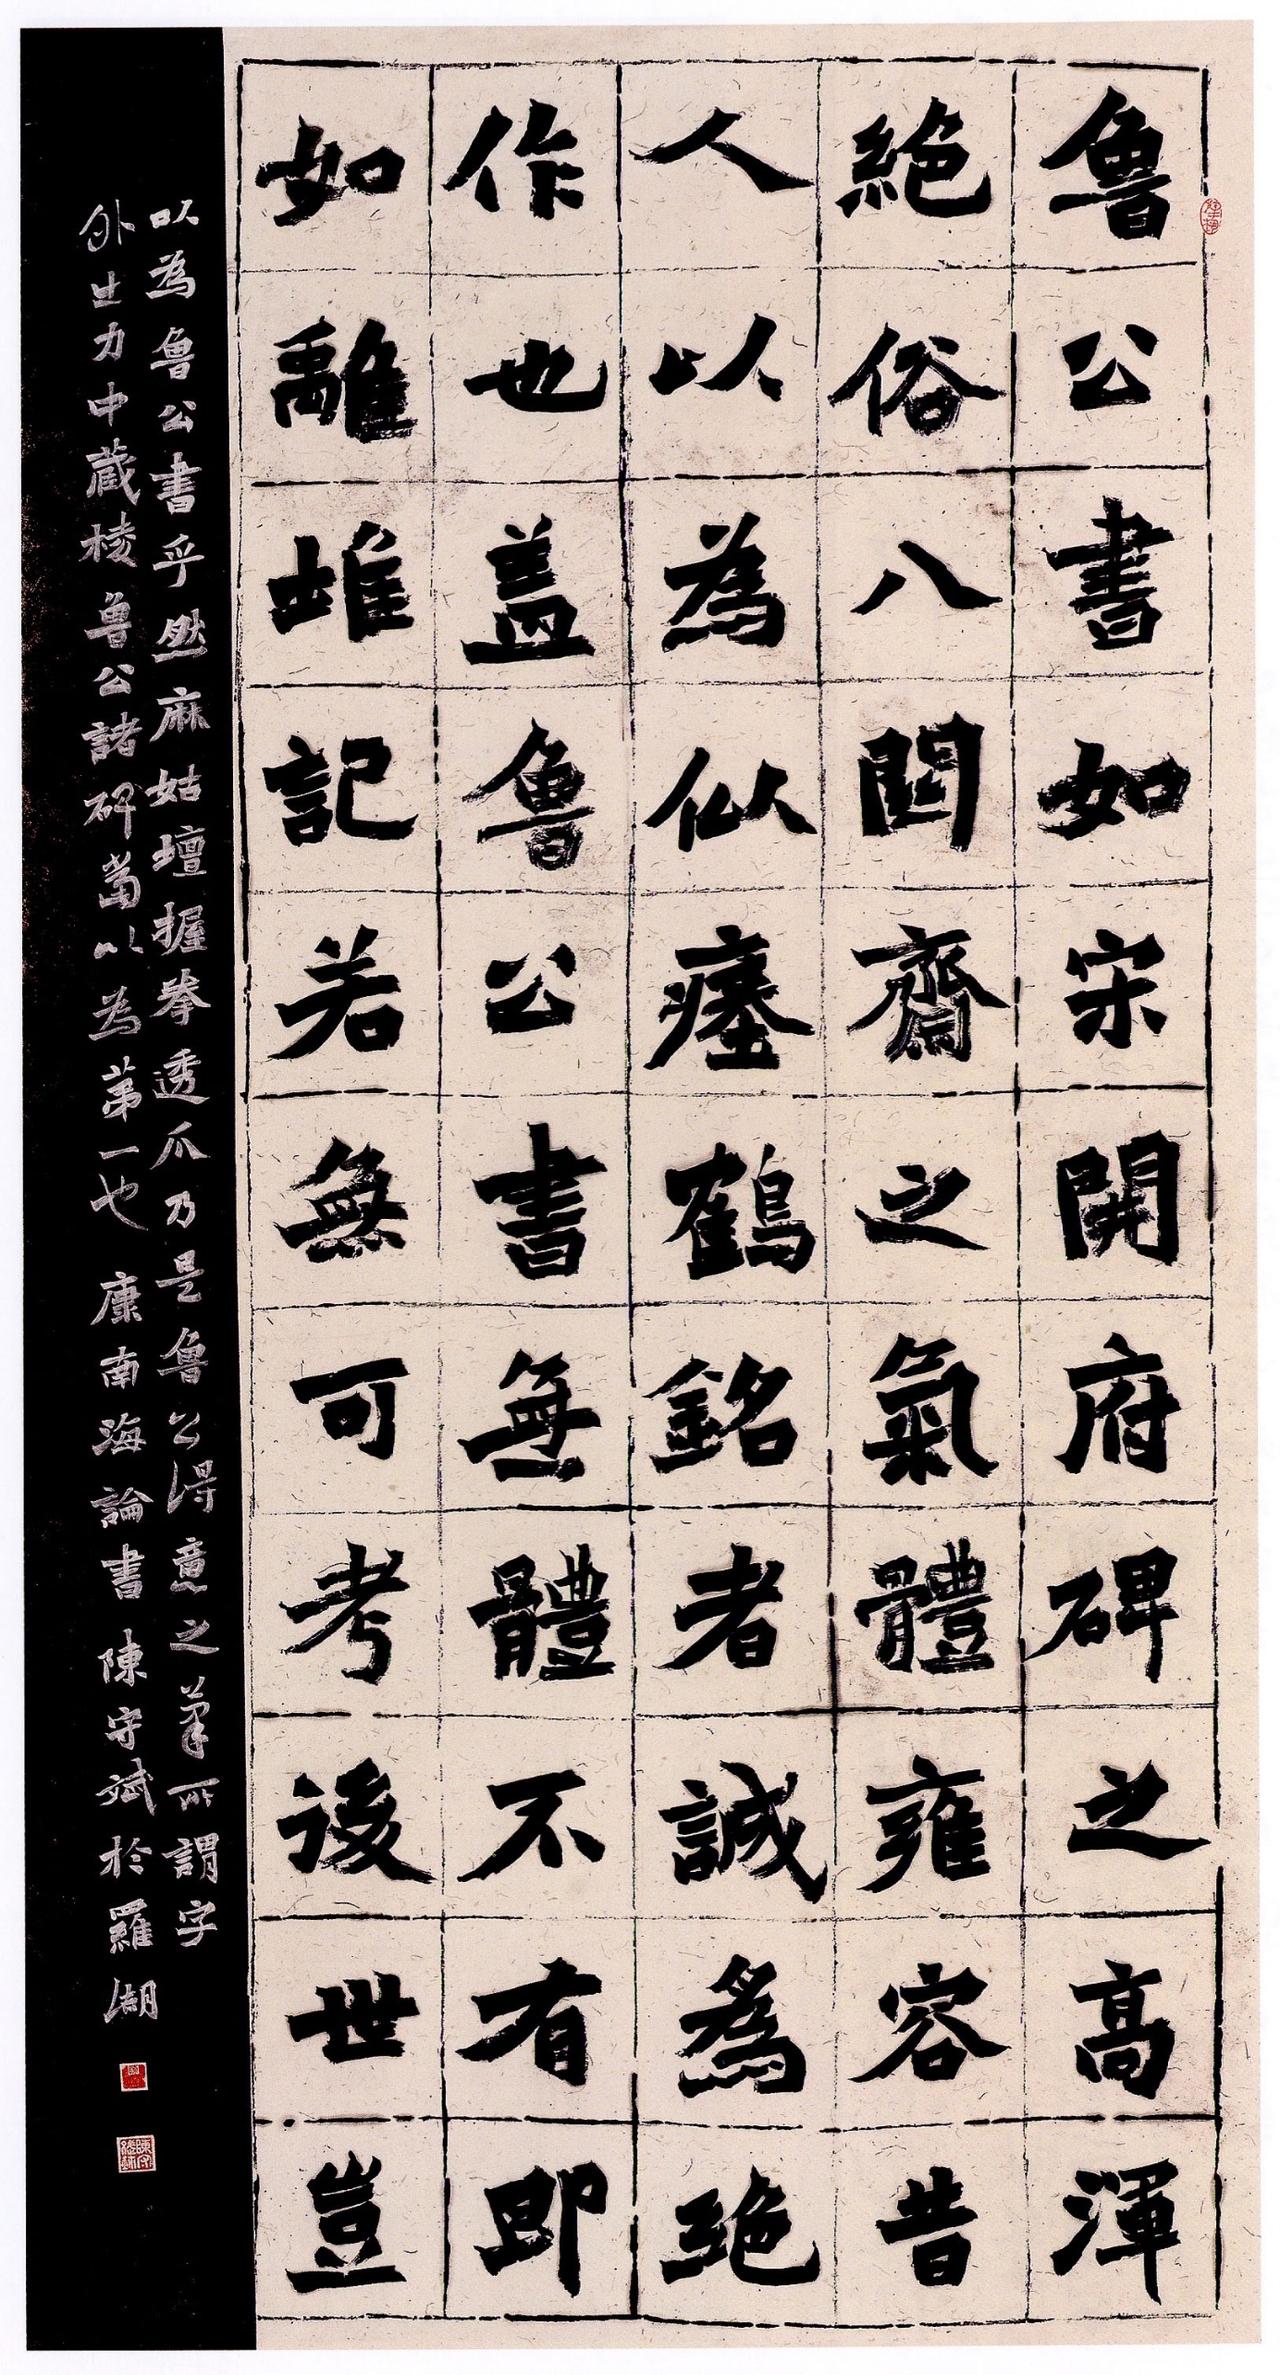 魯公書如宋開府碑之高渾
絕俗八關齋之氣體雍容昔
人以為似瘞鶴銘者誠為絕
作也蓋魯公書無體不有即
如離堆記若無可考後世豈
以為魯公書乎然麻姑壇握拳透爪乃是魯公得意之筆所謂字
外出力中藏棱魯公諸碑當以為第一也 康南海論書 陳守斌於羅湖